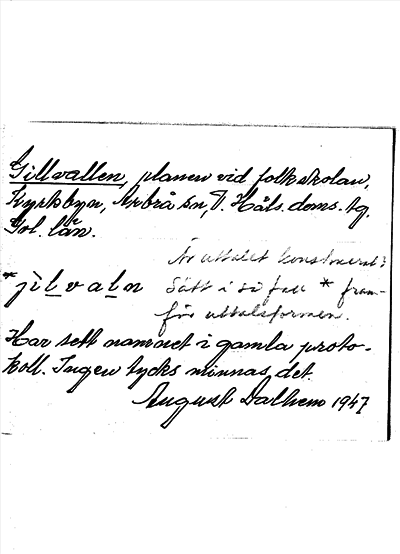 Gillvallen, planen vid folkskolan,
Kyrkbyn, Arbrå sn, V. Häls. doms. tg.
Gvl. län.
Är uttalet konstruerat?
*jìlvaln Sätt i så fall * fram-
för uttalsformen.
Har sett namnet i gamla proto-
koll. Ingen tycks minnas det.
August Dalhem 1947